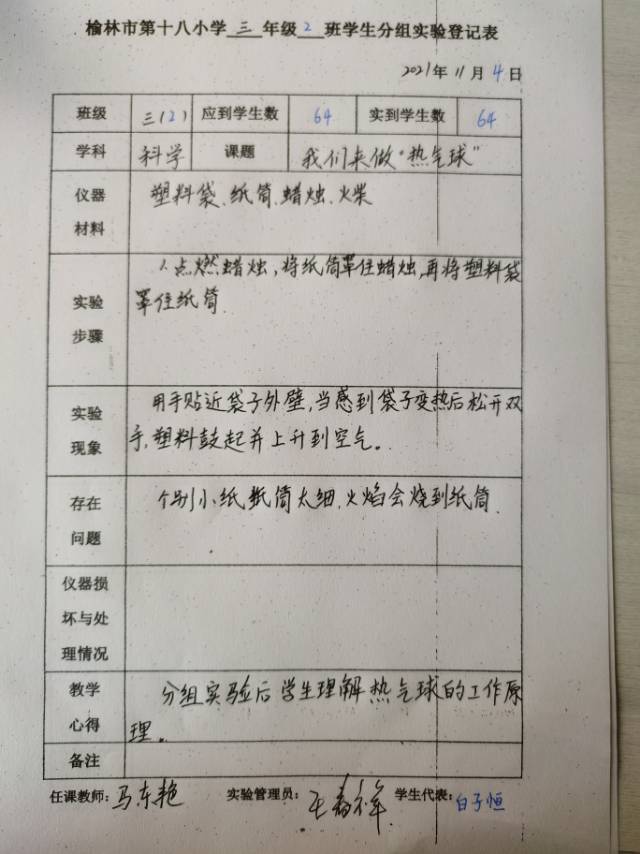 榆林市第十八小学三年级2班学生分组实验登记表
2021年11月4日
班级 三(2) 应到学生数 64 实到学生数 64
学科 科学 课题 我们来做“热气球”
仪器材料 塑料袋、纸筒、蜡烛、火柴
实验步骤 1、点燃蜡烛,将纸筒罩住蜡烛,再将塑料袋
罩住纸筒
实验现象 用手贴近袋子外壁,当感到袋子变热后松开双
手,塑料鼓起并上升到空气。
存在问题 个别小纸筒太细、火焰会烧到纸筒
仪器损坏与处理情况
教学心得 分组实验后学生理解热气球的工作原
理。
备注
任课教师:马东艳 实验管理员: 学生代表:白子恒